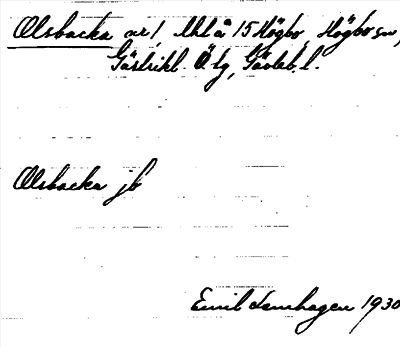 Olsbacka nr 1 lht å 15 Högbo, Högbo sn,
Gästrikl. Ö. lg, Gävleb. l.
Olsbacka jb
Emil Lennhagen 1930